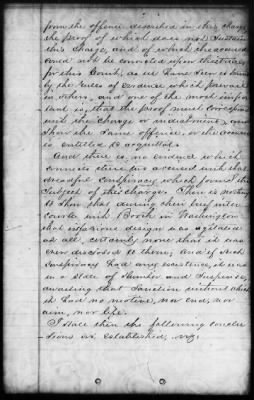 from the offence described in this charge
the proof of which does not sustain
this charge, and of which the accused
could not be convicted upon
for this Court, as we have seen is bound
by the rules of evidence which prevail
in others, and one of the most impor
tant is, that the proof must correspond
with the charge or indictment, and
show the same offence, or the accused
is entitled to acquittal.
And there is no evidence which
connects these two accused with that
dreadful conspiracy which forms the
subject of this charge. There is nothing
to show that during their brief inter
course with Booth in Washington
that nefarious design was agitated
at all, certainly none that it was
ever disclosed to them; and if such
conspiracy had any existence, it was
in a state of slumber and suspense,
awaiting that sanction without which
it had no motive, nor end, nor
aim, nor life.
I state then the following conclu
sions as established, viz: